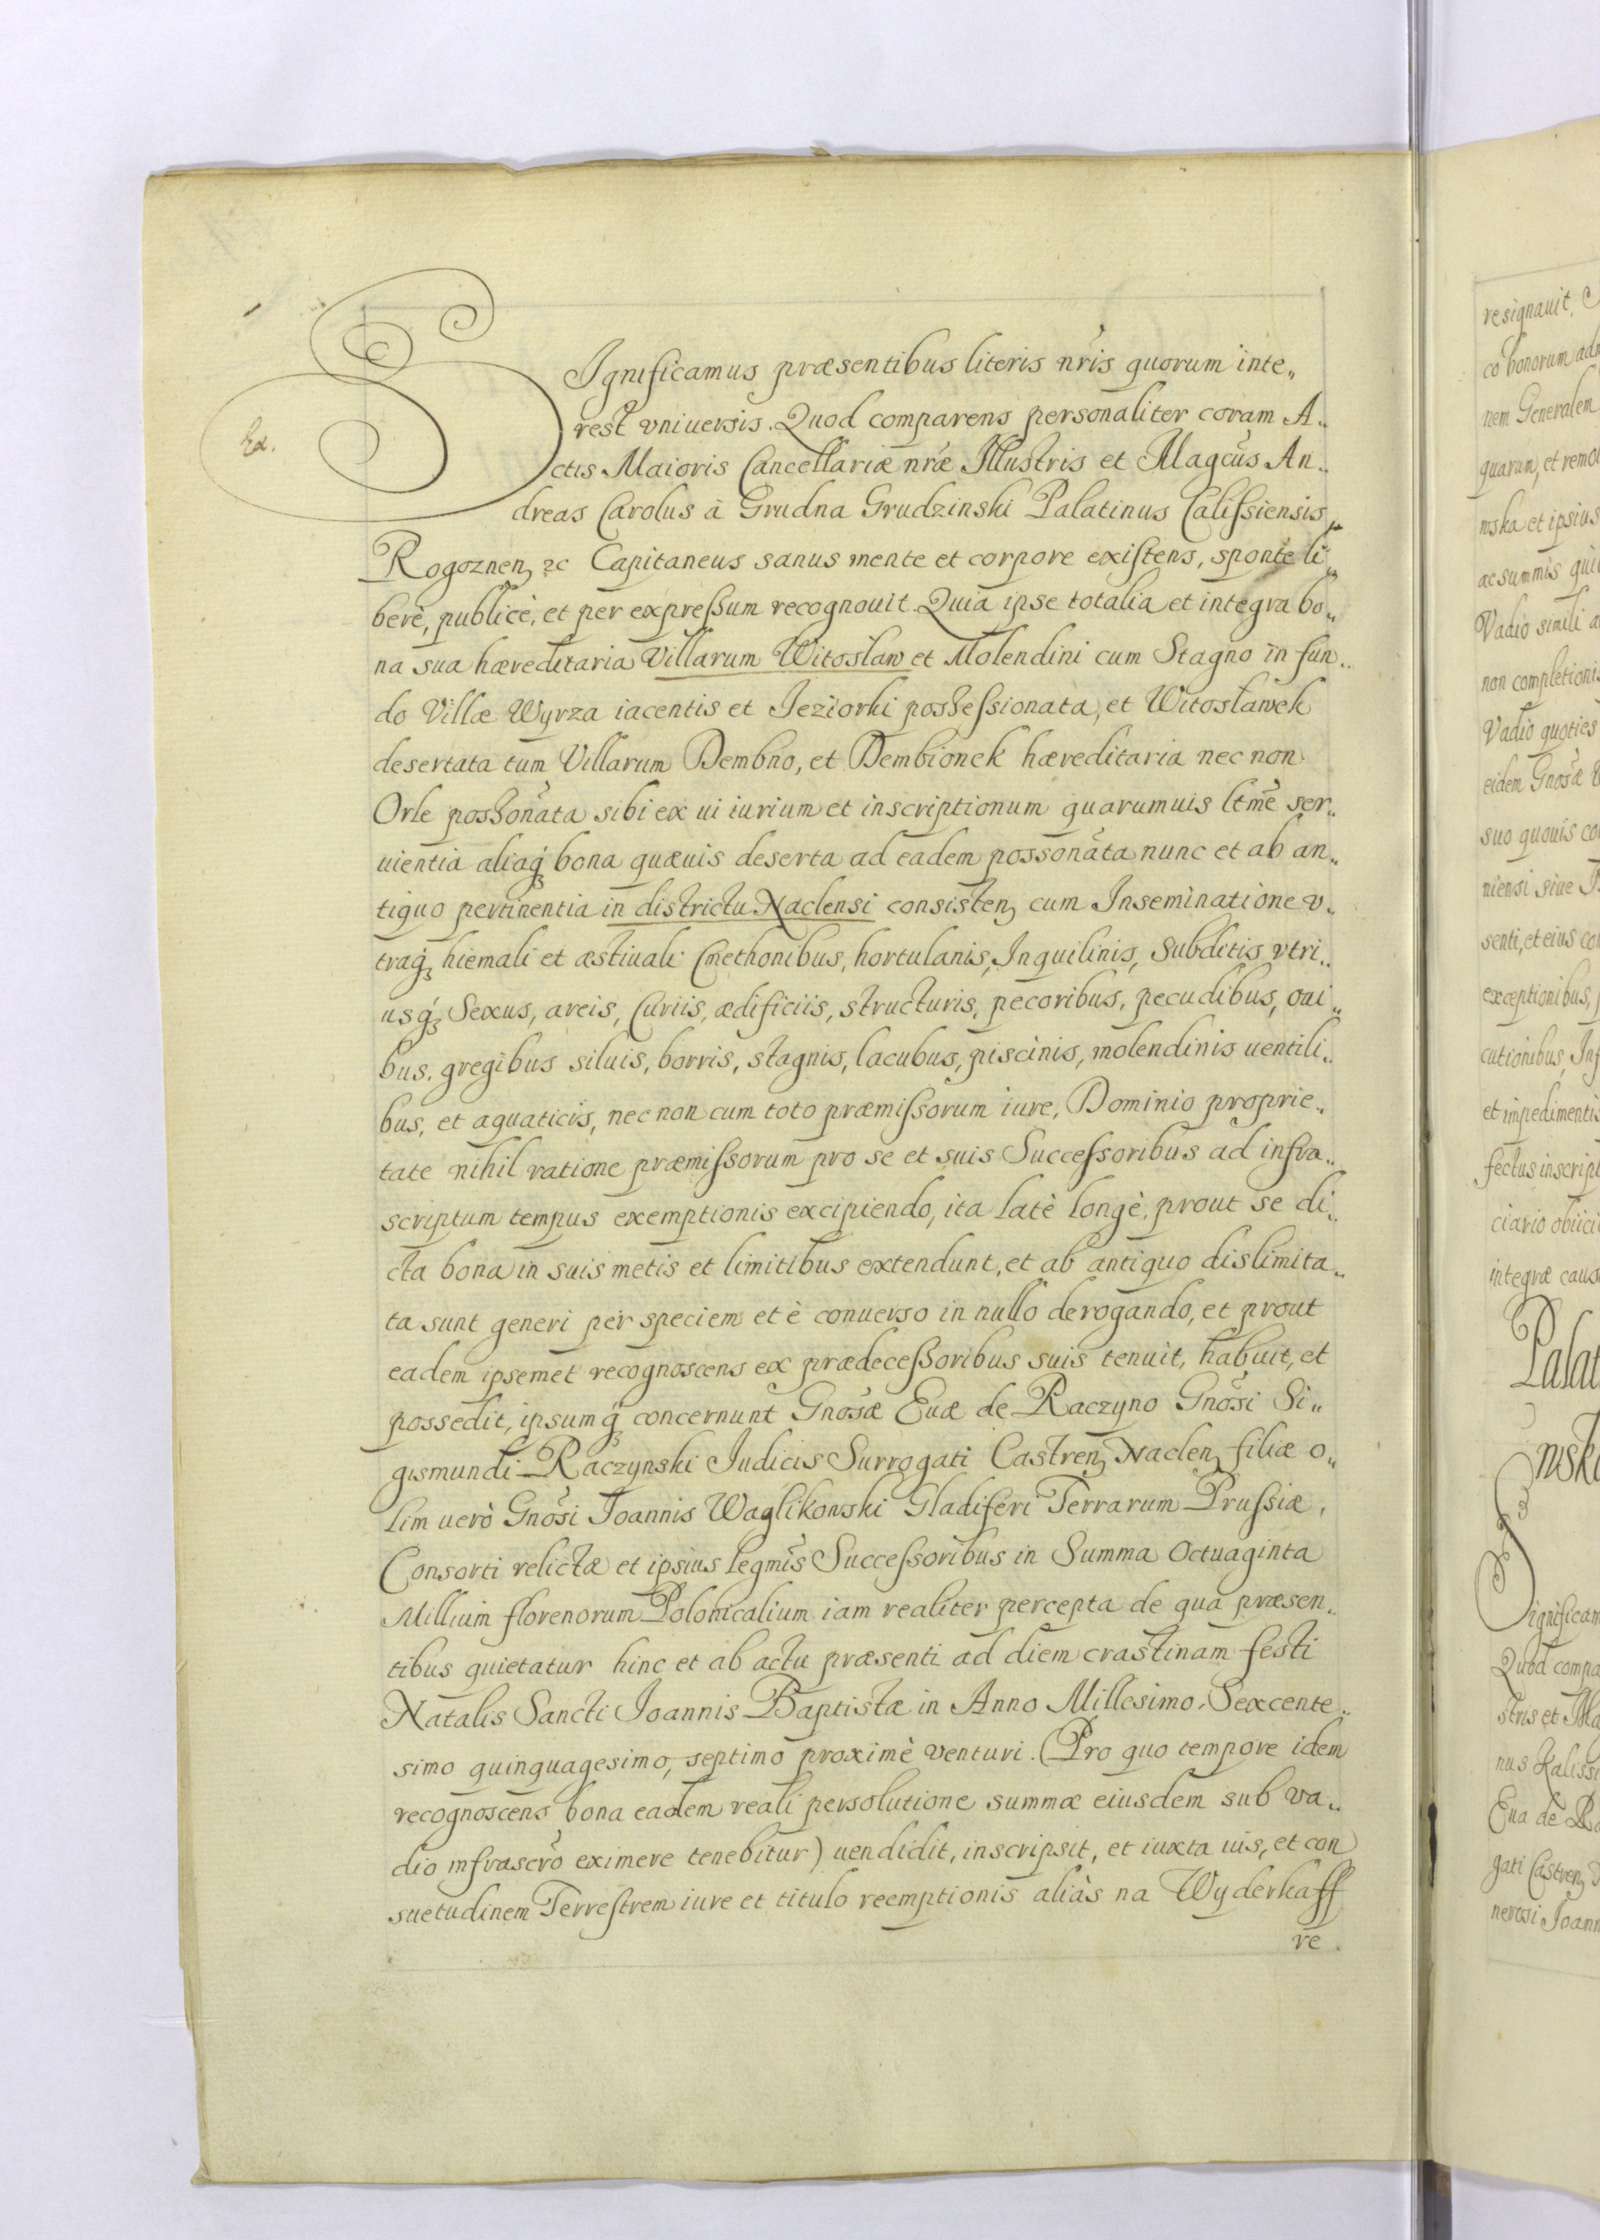 Ex.
SIgnificamus præsentibus literis nr̃is quorum inte„
rest vniuersis. Quod comparens personaliter coram A„
ctis Maioris Cancellariæ nr̃æ Illustris et Magcũs An„
dreas Carolus à Grudna Grudzinski Palatinus Calißiensis
Rogoznenꝫ ꝛc Capitaneus sanus mente et corpore existens, sponte li„
berè, publicè, et per expreßum recognouit. Quia ipse totalia et integra bo„
na sua hæreditaria Villarum Witosław et Molendini cum Stagno in fun„
do Villæ Wyrza iacentis et Jeziorki posseßionata, et Witosławek
desertata tum Villarum Dembno, et Dembionek hæreditaria nec non
Orle possonãta sibi ex ui iurium et inscriptionum quarumuis ltmẽ ser„
uientia aliaqꝫ bona quæuis deserta ad eadem possonãta nunc et ab an„
tiquo pertinentia in districtu Naclensi consistenꝫ cum Inseminatione v„
traqꝫ hiemali et æstiuali Cmethonibus, hortulanis, Inquilinis, Subditis vtri„
usqꝫ Sexus, areis, Curiis, ædificiis, structuris, pecoribus, pecudibus, oui„
bus, gregibus siluis, borris, stagnis, lacubus, piscinis, molendinis uentili„
bus, et aquaticis, nec non cum toto præmißorum iure, Dominio proprie„
tate nihil ratione præmißorum pro se et suis Succeßoribus ad infra„
scriptum tempus exemptionis excipiendo, ita latè longè, prout se di„
cta bona in suis metis et limitibus extendunt, et ab antiquo dislimita„
ta sunt generi per speciem et è conuerso in nullo derogando, et prout
eadem ipsemet recognoscens ex prædeceßoribus suis tenuit, habuit, et
possedit, ipsumqꝫ concernunt Gnosæ̃ Euæ de Raczyno Gnosĩ Si„
gismundi Raczynski Judicis Surrogati Castrenꝫ Naclenꝫ filiæ o„
lim uerò Gnosĩ Joannis Waglikowski Gladiferi Terrarum Prußiæ,
Consorti relictæ et ipsius legmĩs Succeßoribus in Summa Octuaginta
Millium florenorum Polonicalium iam realiter percepta de qua præsen„
tibus quietatur hinc et ab actu præsenti ad diem crastinam festi
Natalis Sancti Joannis Baptistæ in Anno Millesimo Sexcente„
simo quinquagesimo, septimo proximè venturi. (Pro quo tempore idem
recognoscens bona eadem reali persolutione summæ eiusdem sub va„
dio infrascrõ eximere tenebitur) uendidit, inscripsit, et iuxta ius, et con
suetudinem Terrestrem iure et titulo reemptionis aliàs na Wyderkaff
re.
resignauit,
co bonorum
nem Generalem
quarum, et
mska et ipsius
ac summis
Vadio simili
non completionis
Vadio quoties
eidem Gnosæ̃
suo quouis
niensi siue
senti, et eius
exceptionibus,
cutionibus,
et impedimentis
fectus
ciario
integræ
Palat
nsk
Significam
Quod compa
stris et
nus Kalissi
Eua de
gati Castrenꝫ
nerosi Joann